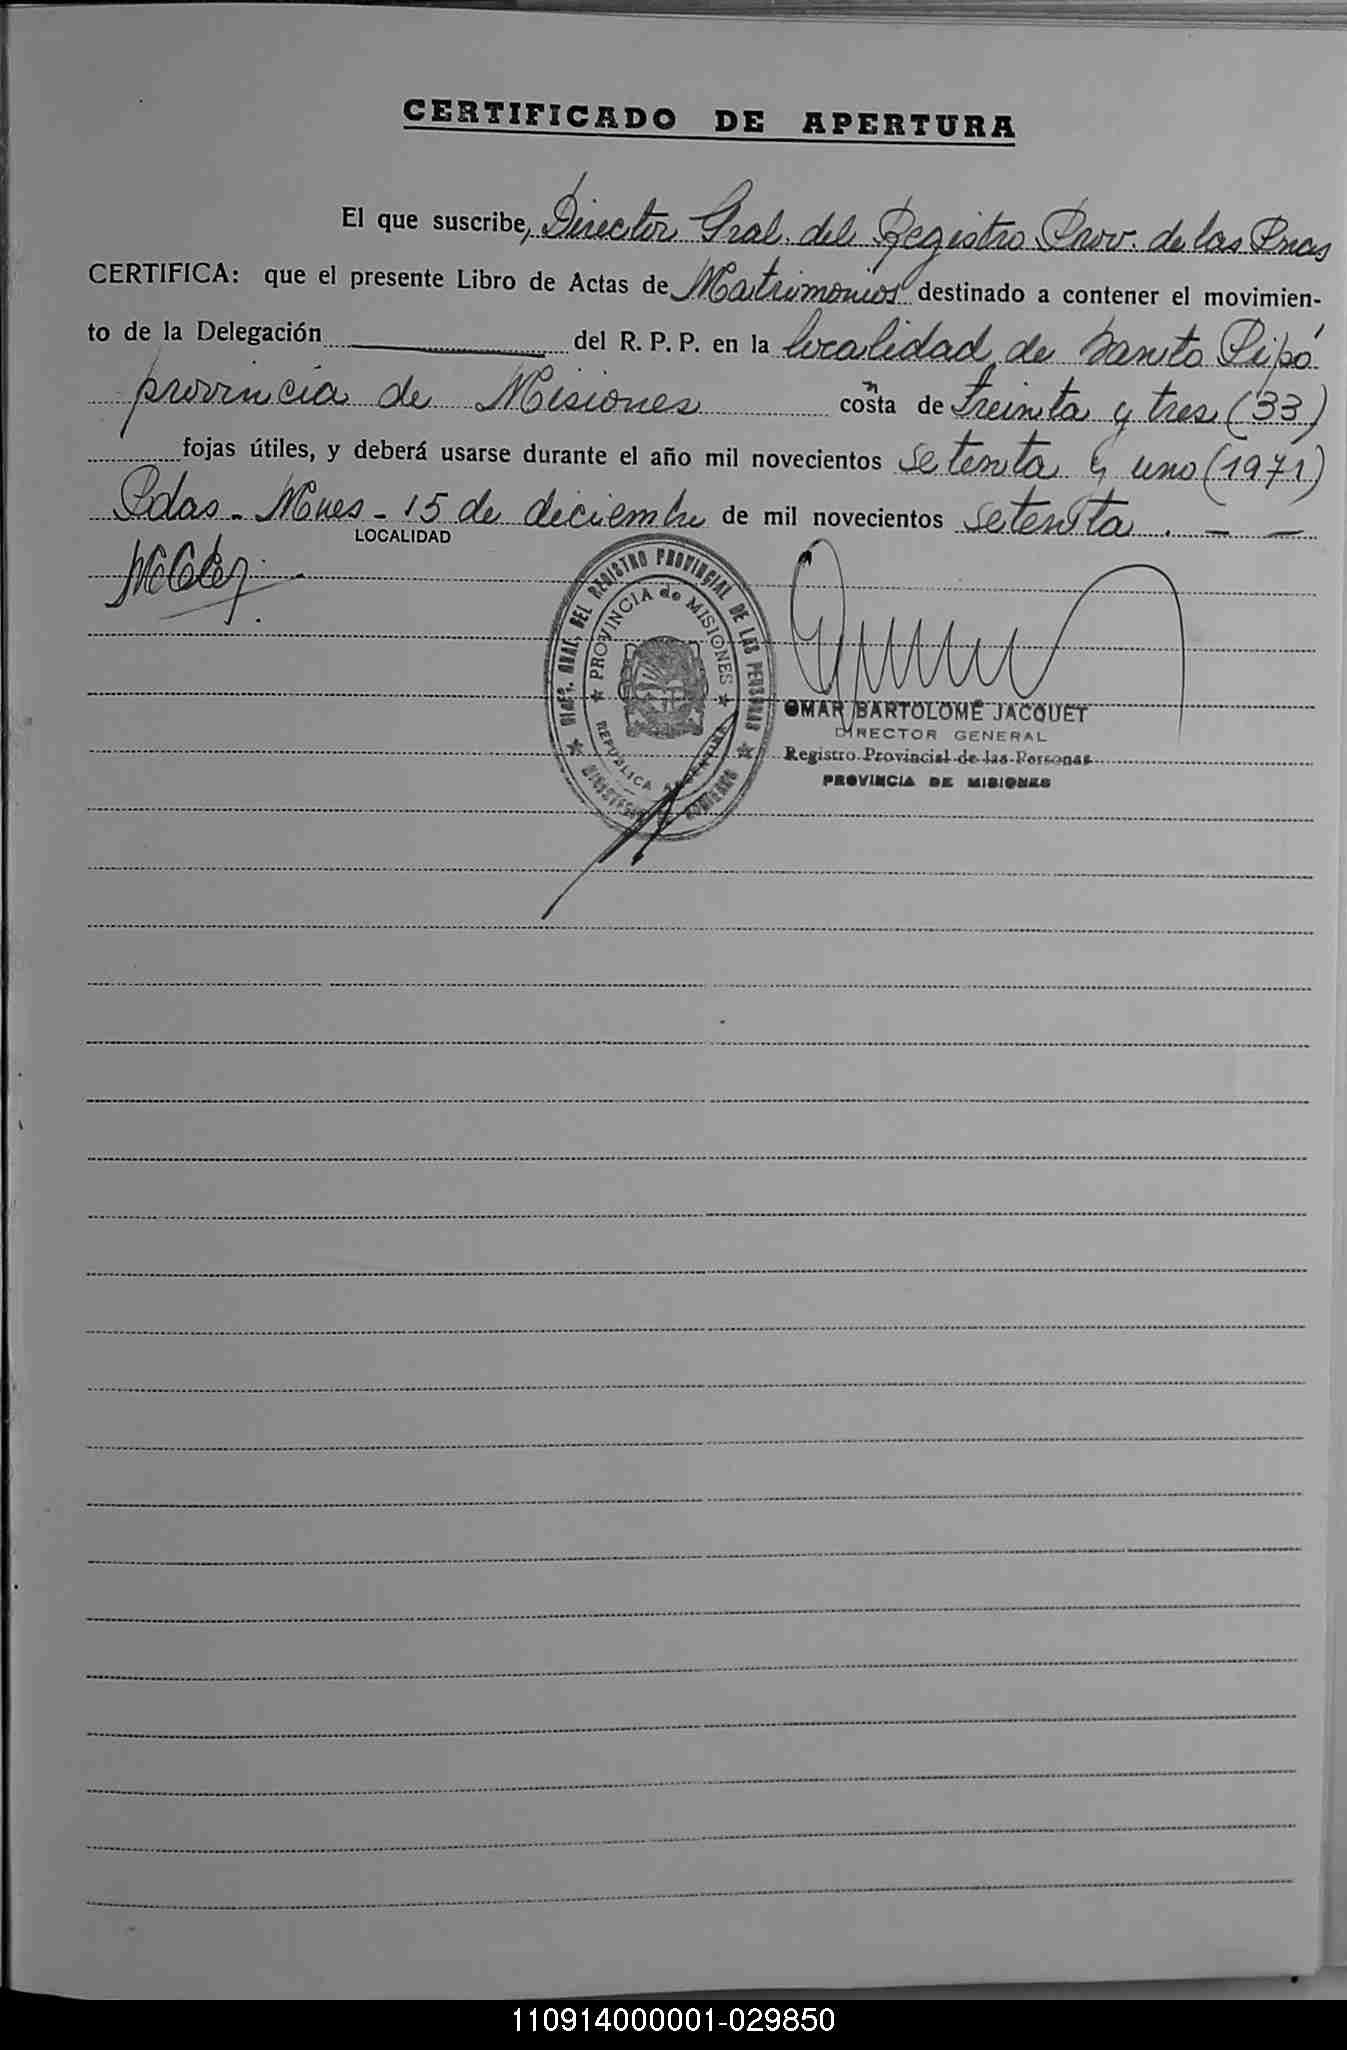 CERTIFICADO DE APERTURA
El que suscribe, Director Gral. del Registro Prov. de las Pnas
CERTIFICA: que el presente Libro de Actas de Matrimonios destinado a contener el movimien-
to de la Delegación del R. P. P. en la localidad de Santo Pipó
provincia de Misiones consta de treinta y tres (33)
fojas útiles, y deberá usarse durante el año mil novecientos setenta y uno (1971)
Pdas - Mnes - 15 de diciembre de mil novecientos setenta . - -
LOCALIDAD
DIREC. GRAL. DEL REGISTRO PROVINCIAL DE LAS PERSONAS
PROVINCIA de MISIONES
REPUBLICA ARGENTINA
OMAR BARTOLOMÉ JACQUET
DIRECTOR GENERAL
Registro Provincial de las Personas
PROVINCIA DE MISIONES
110914000001-029850